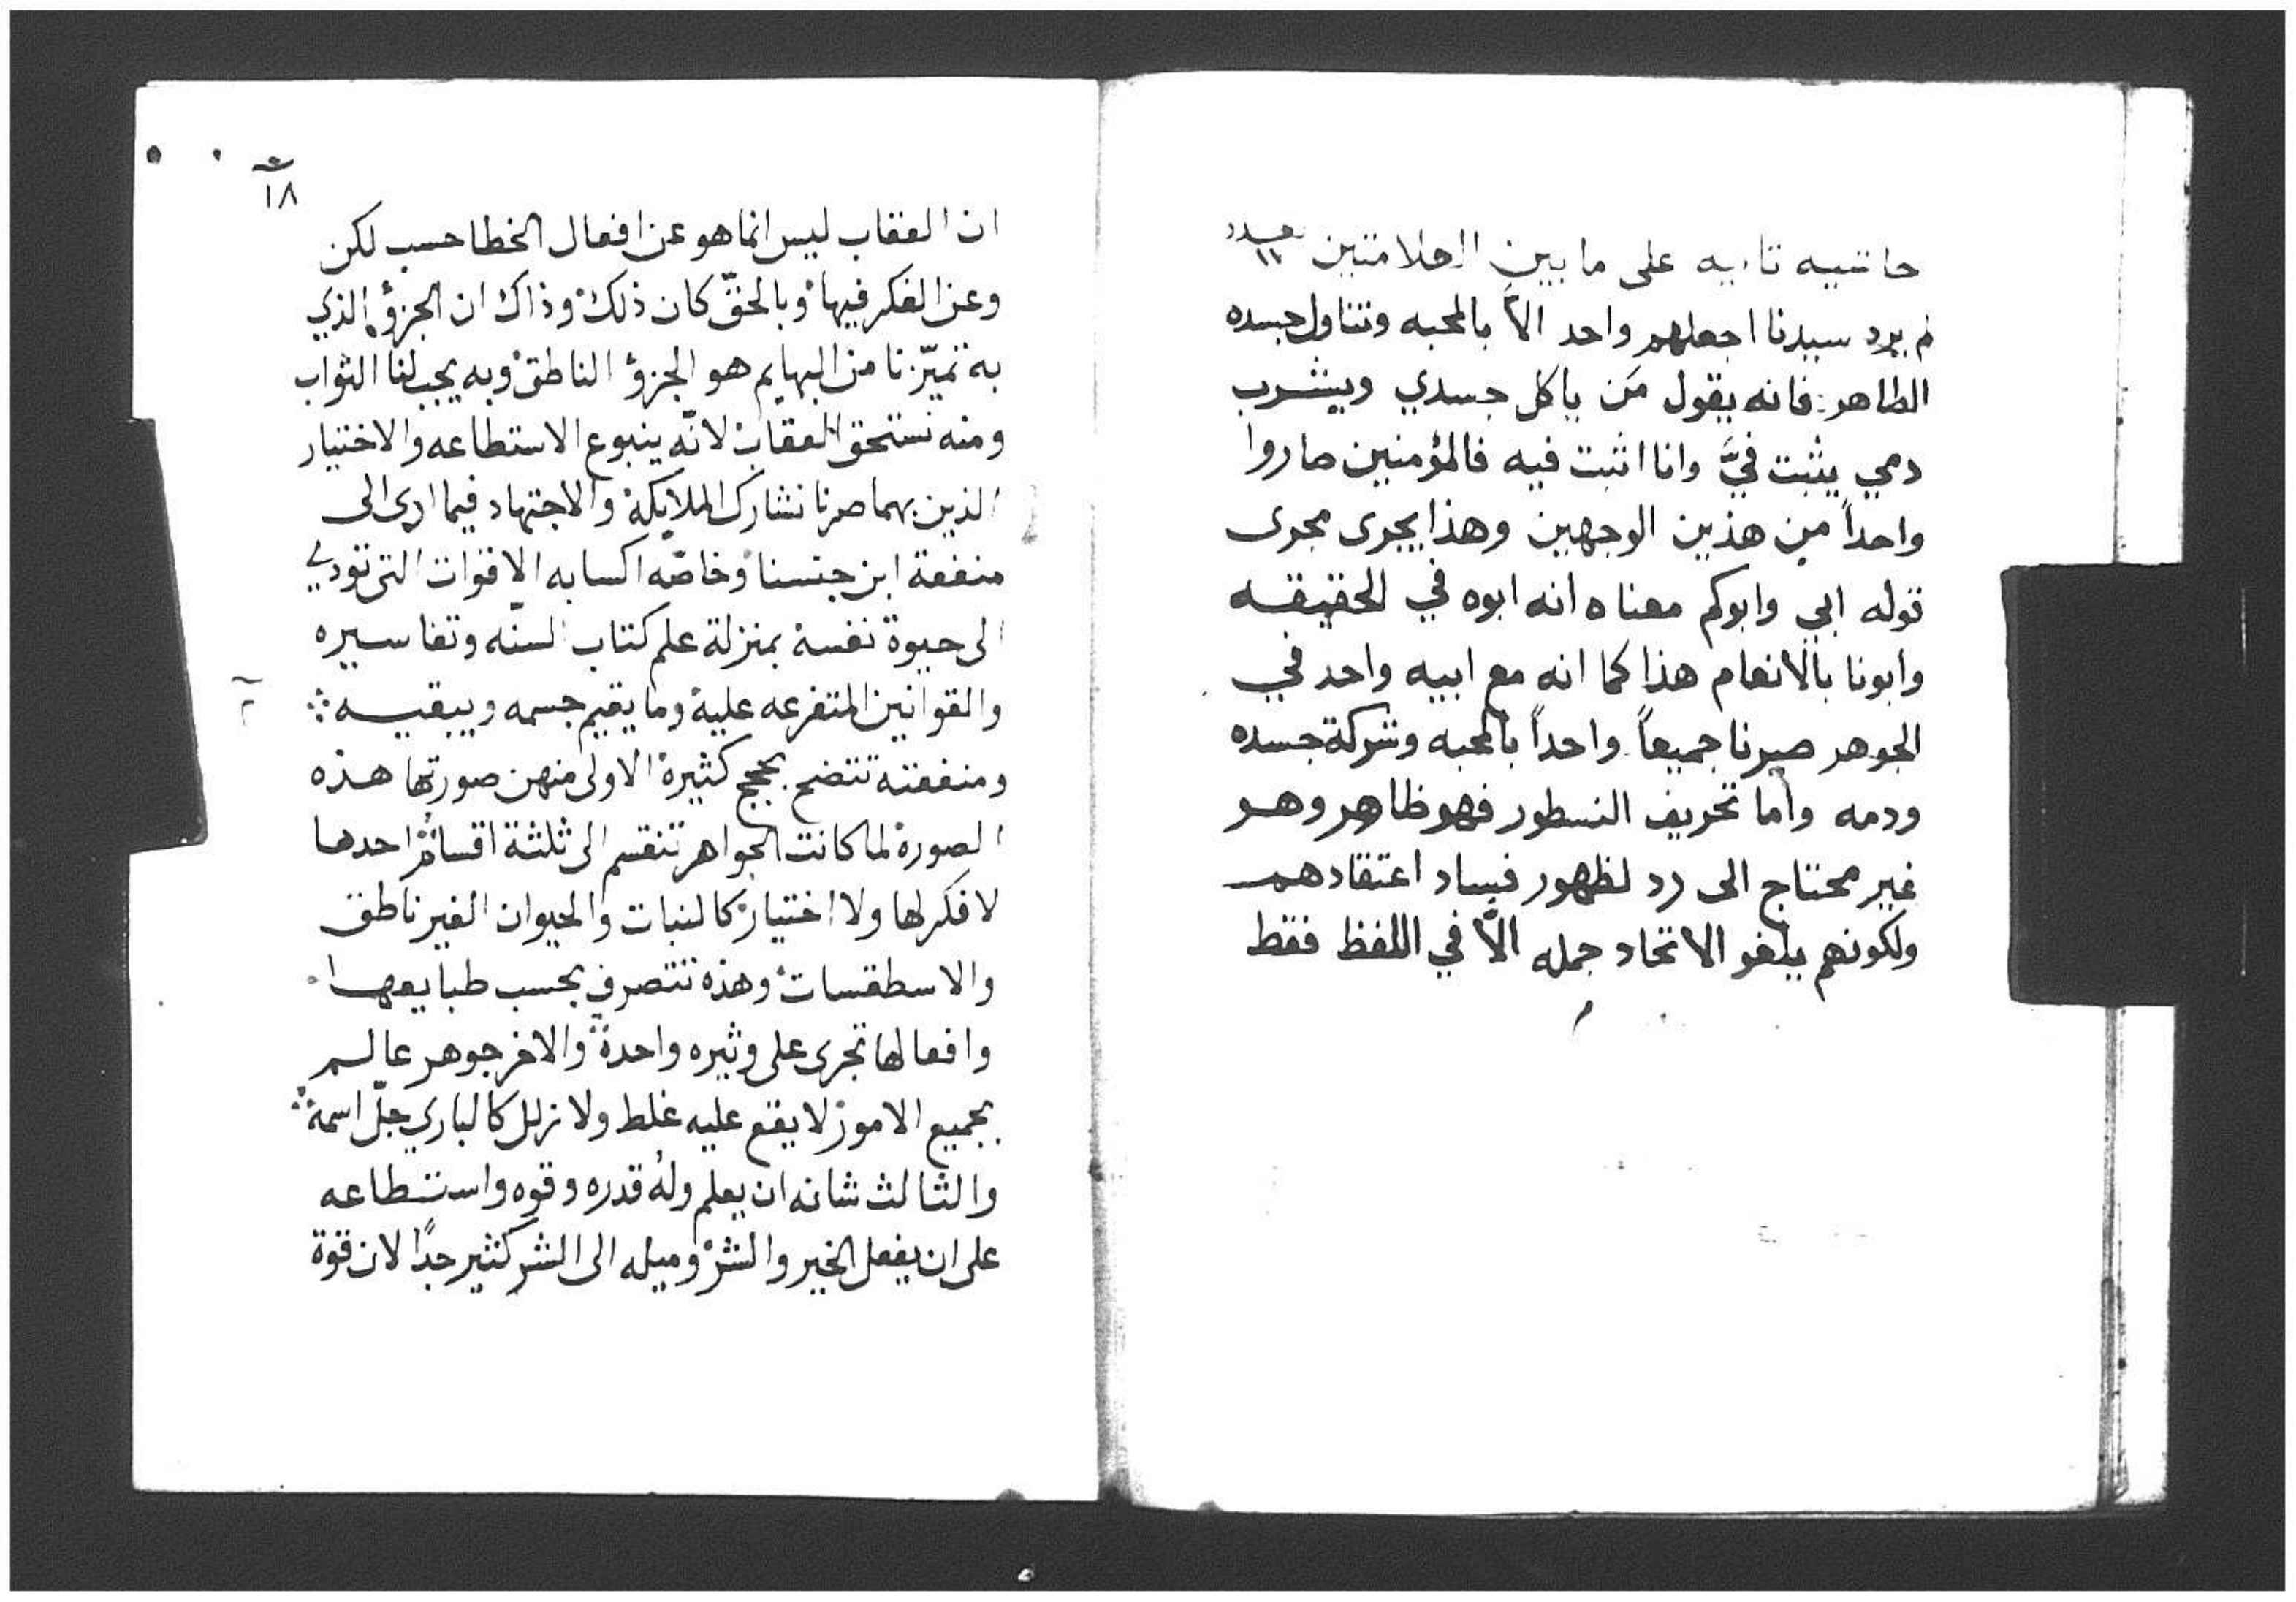 حاشيه تانيه على ما بين العلامتين بعدد ١١
لم يرد سيدنا اجعلهم واحد الاّ بالمحبه وتناول جسده
الطاهر: فانه يقول مَن ياكل جسدي ويشرب
دمي يثبت فيَّ وانا اثبت فيه فالمؤمنين صاروا
واحداً من هذين الوجهين وهذا يجرى مجرى
قوله ابي وابوكم معناه انه ابوه في الحقيقه
وابونا بالانعام هذا كما انه مع ابيه واحد في
الجوهر صيرنا جميعاً واحداً بالمحبه وشركة جسده
ودمه واما تحريف النسطور فهو ظاهر وهو
غير محتاج الى رد لظهور فساد اعتقادهم
ولكونهم يلغو الاتحاد جمله الاَّ في اللفظ فقط
١٨
ان العقاب ليس انما هو عن افعال الخطا حسب لكن
وعن الفكر فيها وبالحقّ كان ذلك وذاك ان الجزؤ الذي
به تميّزنا من البهايم هو الجزؤ الناطق وبه يجب لنا الثواب
ومنه نستحق العقاب لانّه ينبوع الاستطاعه والاختيار
الذين بهما صرنا نشارك الملايكة والاجتهاد فيما ادى الى
منفعة ابن جنسنا وخاصّه اكسابه الاقوات التى تودي
الى حيوة نفسه بمنزلة علم كتاب السنّه وتفاسيره
والقوانين المتفرعه عليه وما يقيم جسمه ويبقيه ⁘
ومنفعته تتضح بحجج كثيرة الاولى منهن صورتها هذه
الصورة لما كانت الجواهر تنقسم الى ثلثة اقسام احدها
لا فكر لها ولا اختيار كالنبات والحيوان الغير ناطق
والاسطقسات وهذه تتصرف بحسب طبايعها
وافعالها تجرى على وثيره واحدة والاخر جوهر عالم
بجميع الامور لا يقع عليه غلط ولا زلل كالباري جلّ اسمه ⁘
والثالث شانه ان يعلم وله قدره وقوه واستطاعه
على ان يفعل الخير والشر وميله الى الشر كثير جدًا لان قوة